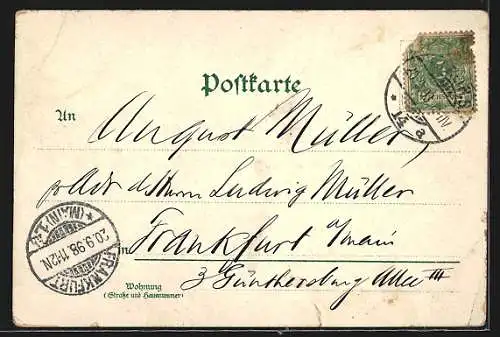 Postkarte
An
August Müller,
p. Adr d. Herrn Ludwig Müller
in Frankfurt a/Main
3 Günthersburg Allee III
Wohnung
(Straße und Hausnummer)
FRANKFURT
(MAIN) 1
20.9.98. 11-12N.